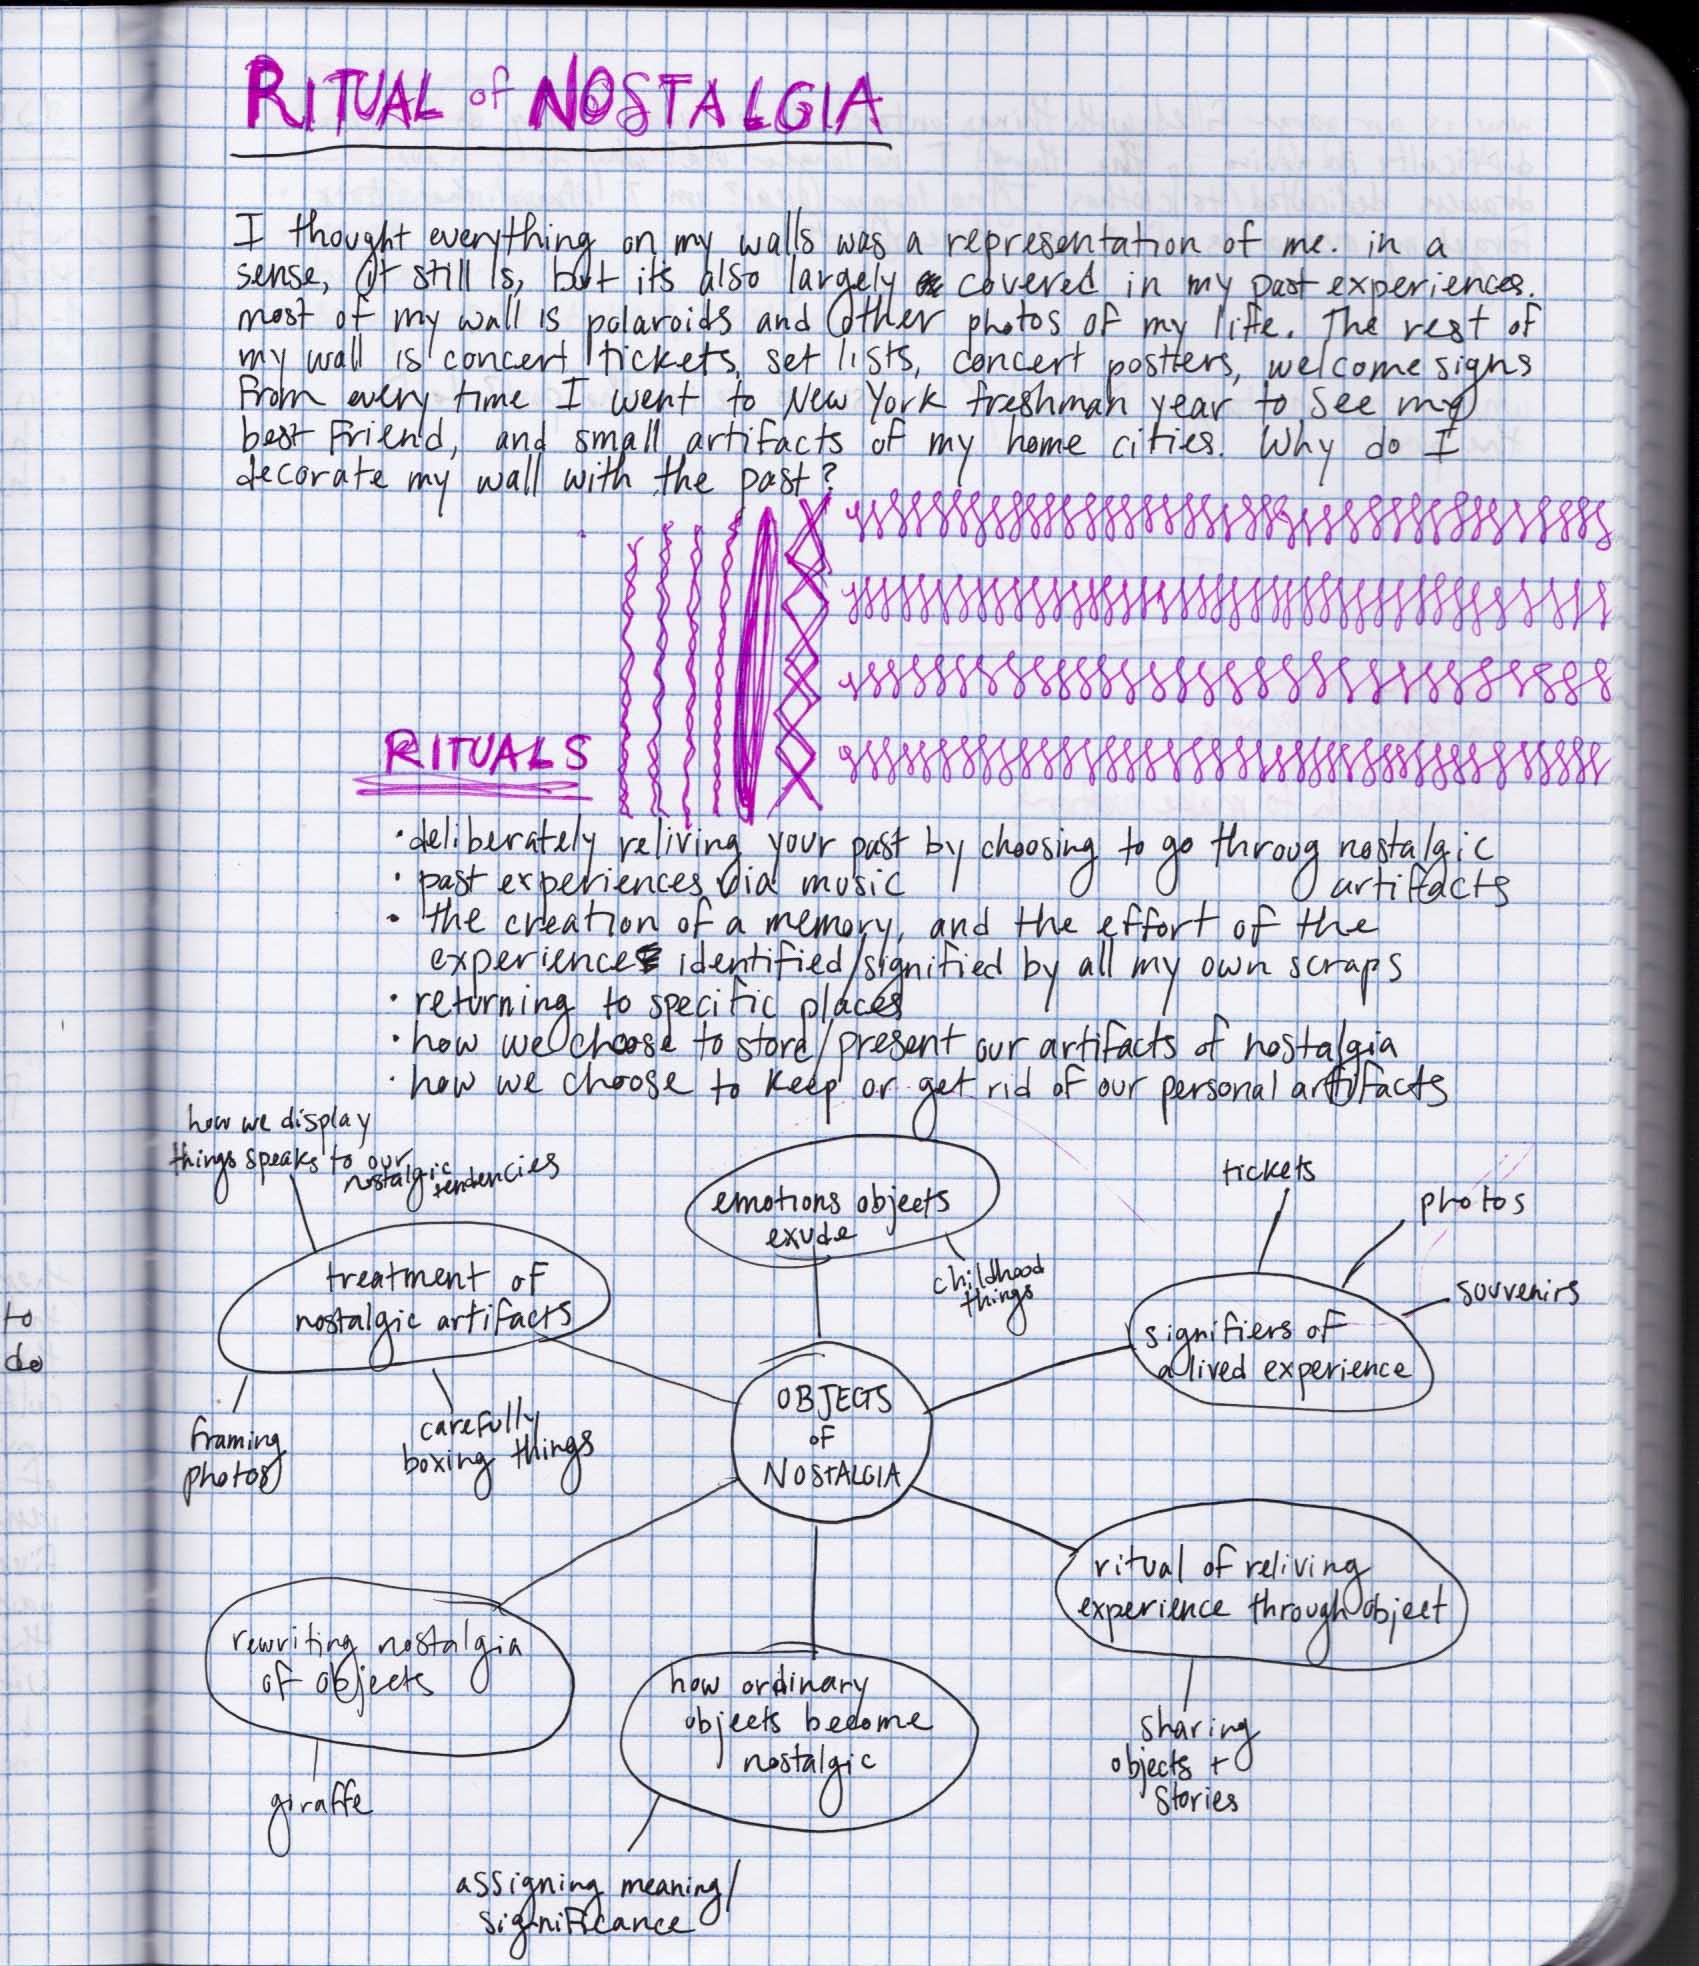 RITUAL of NOSTALGIA
I thought everything on my walls was a representation of me. in a
sense, it still is, but its also largely covered in my past experiences.
most of my wall is polaroids and other photos of my life. The rest of
my wall is concert tickets, set lists, concert postters, welcome signs
from every time I went to New York freshman year to see my
best friend, and small artifacts of my home cities. Why do I
decorate my wall with the past?
RITUALS
• deliberately reliving your past by choosing to go throug nostalgic
artifacts
• past experiences via music
• the creation of a memory, and the effort of the
experience identified/signified by all my own scraps
• returning to specific places
• how we choose to store/present our artifacts of nostalgia
• how we choose to keep or get rid of our personal artifacts
how we display
things speaks to our
nostalgic tendencies
treatment of
nostalgic artifacts
framing
photos
carefully
boxing things
emotions objects
exude
childhood
things
tickets
photos
souvenirs
signifiers of
a lived experience
OBJECTS
of
NOSTALGIA
ritual of reliving
experience through object
sharing
objects +
stories
rewriting nostalgia
of objects
giraffe
how ordinary
objects become
nostalgic
assigning meaning/
significance
to
do